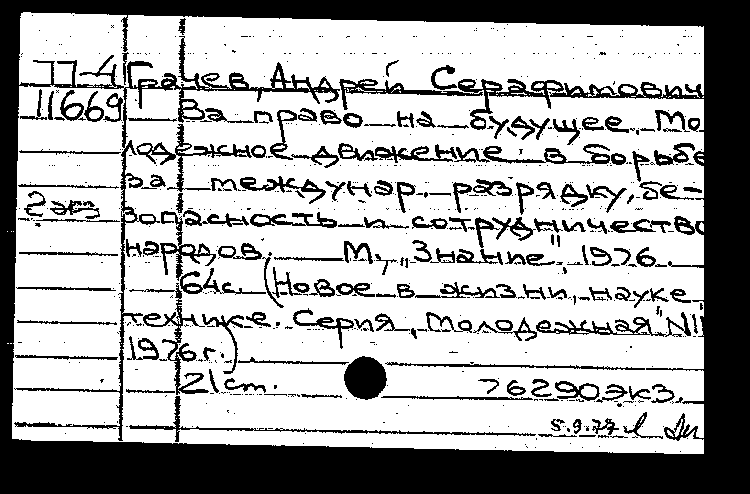 77-4 Грачев, Андрей Серафимович
11669 За право на будущее. Мо
лодежное движение в борьбе
за междунар. разрядку, бе-
2 экз зопасность и сотрудничество
народов. М., "Знание", 1976.
64с. (Новое в жизни, науке,
технике. Серия, Молодежная" N11
1976г.).
21 cm. 76290экз.
5.9.77